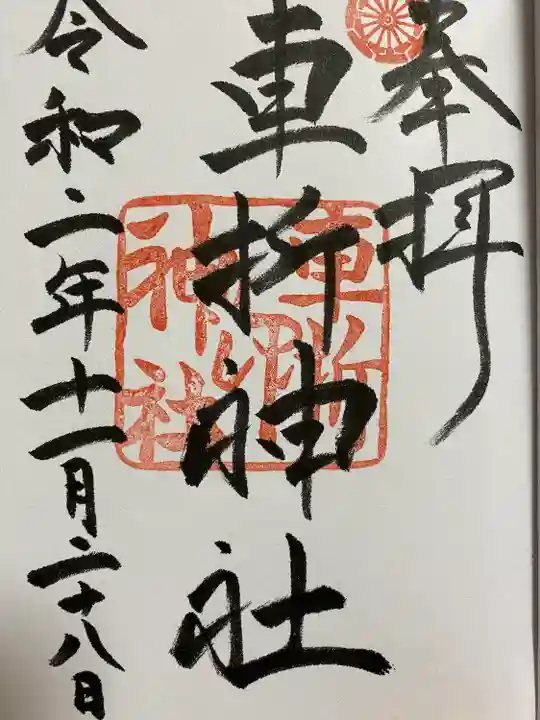 奉拝
車折神社
令和二年十一月二十八日
車折
神社